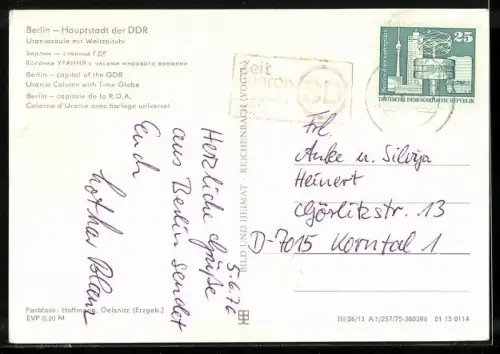 Berlin – Hauptstadt der DDR
Uraniasäule mit Weltzeituhr
Берлин – столица ГДР
Колонка УРАНИЯ с часами мирового времени
Berlin – capital of the GDR
Urania Column with Time Globe
Berlin – capitale de la R.D.A.
Colonne d'Urania avec horloge universel
5.6.76
Herzliche Grüße
aus Berlin sendet
Euch
Lothar Blanz
Farbfoto: Hoffmann, Oelsnitz (Erzgeb.)
EVP 0,20 M
BILD UND HEIMAT · REICHENBACH (VOGTL)
25
DEUTSCHE DEMOKRATISCHE REPUBLIK
Frl.
Anke u. Silvija
Heinert
Görlitzstr. 13
D-7015 Korntal 1
III/26/13 A 1/257/75-380396 01 15 0114